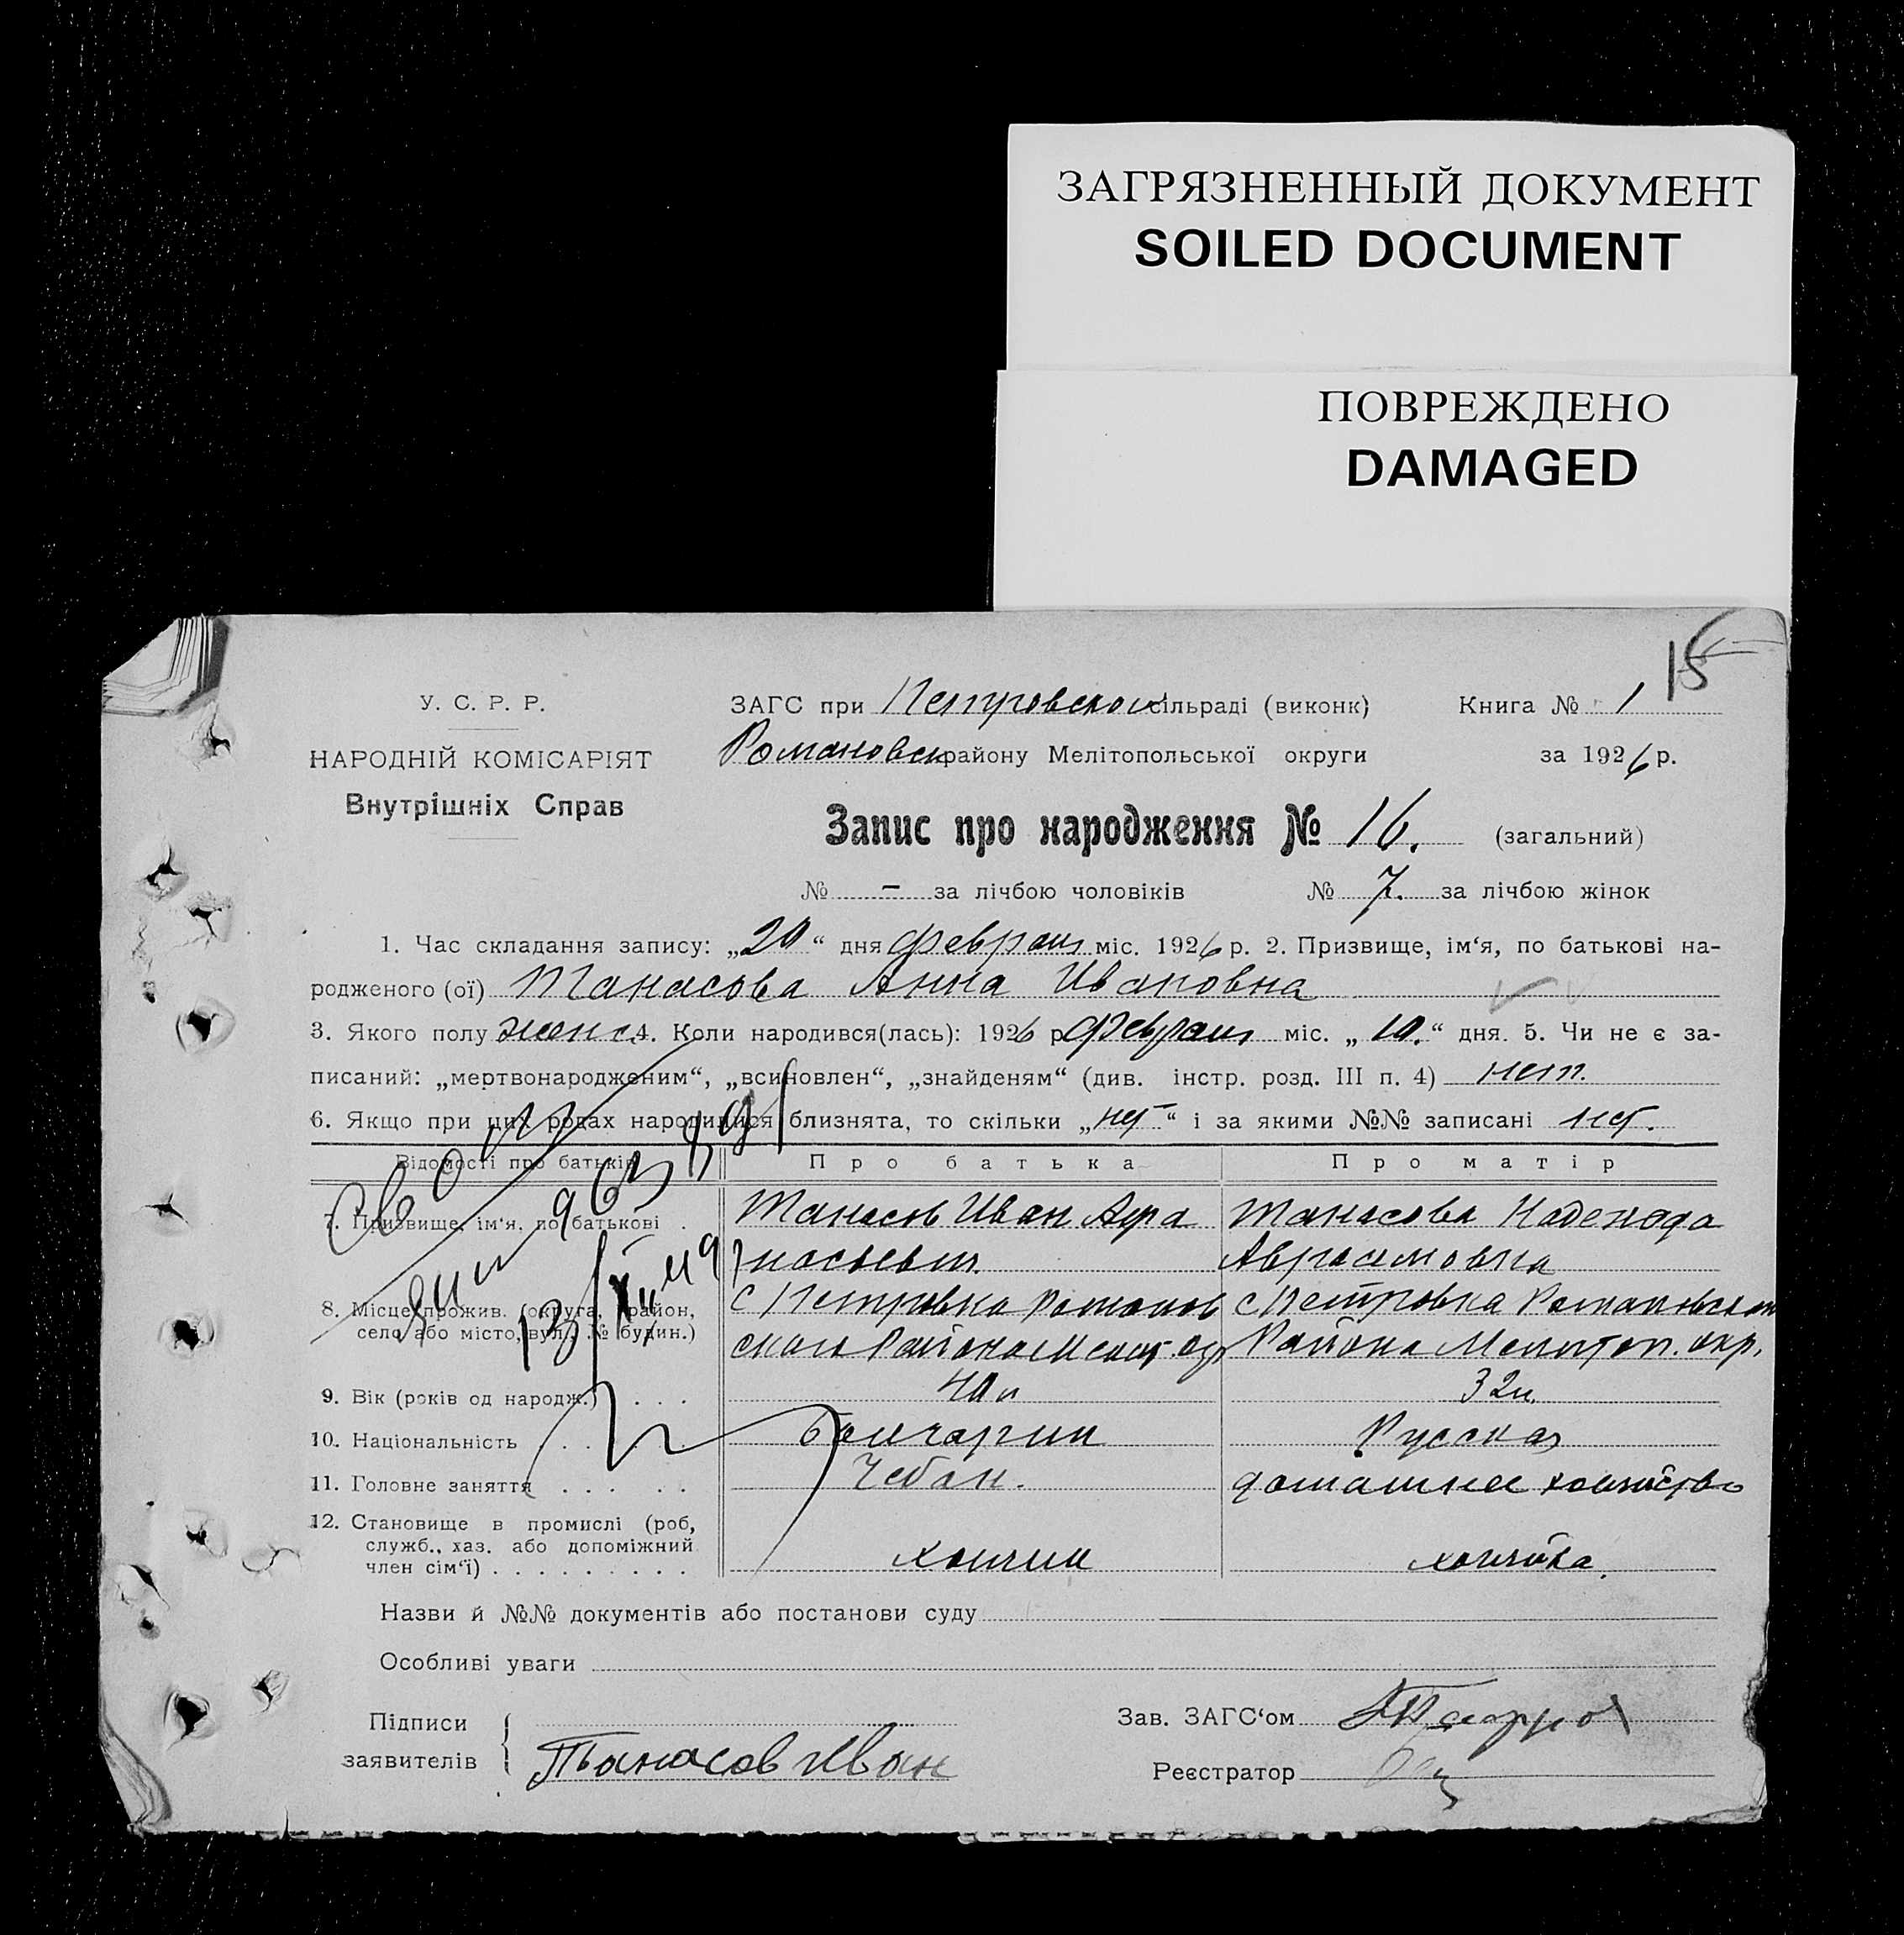 ЗАГРЯЗНЕННЫЙ ДОКУМЕНТ
SOILED DOCUMENT
ПОВРЕЖДЕНО
DAMAGED
15
У. С. Р. Р.
НАРОДНІЙ КОМІСАРІЯТ
Внутрішніх Справ
ЗАГС при Петровской сільраді (виконк) Книга № 1
Романовск району Мелітопольської округи за 1926 р.
Запис про народження № 16. (загальний)
№ - за лічбою чоловіків № 7. за лічбою жінок
1. Час складання запису: „20“ дня февраля міс. 1926 р. 2. Призвище, ім‘я, по батькові на-
родженого (ої) Танасова Анна Ивановна
3. Якого полу женс. 4. Коли народився(лась): 1926 р февраля міс. „10.“ дня. 5. Чи не є за-
писаний: „мертвонародженим“, „всиновлен“, „знайденям“ (див. інстр. розд. III п. 4) нет.
6. Якщо при цих родах народилися близнята, то скільки „нет“ і за якими №№ записані нет.
Відомості про батьків Про батька Про матір
7. Призвище, ім‘я, по батькові . Танасов Иван Афа Танасова Надежда
насьевич. Аврамовна
8. Місце прожив. (округа, район, с Петровка Романов с Петровка Романовского
село або місто, вул., № будин.) ского Района Мелит. окр Района Мелитоп. окр.
9. Вік (років од народж.) . . . 40 л 32 л.
10. Національність . . . . . Болгарин Русская
11. Головне заняття . . . . . Чебан. домашнее хозяйство
12. Становище в промислі (роб,
служб., хаз. або допоміжний
член сім‘ї) . . . . . . . . . хозяин хозяйка.
Назви й №№ документів або постанови суду
Особливі уваги
Підписи
заявителів Танасов Иван
Зав. ЗАГС‘ом
Реєстратор